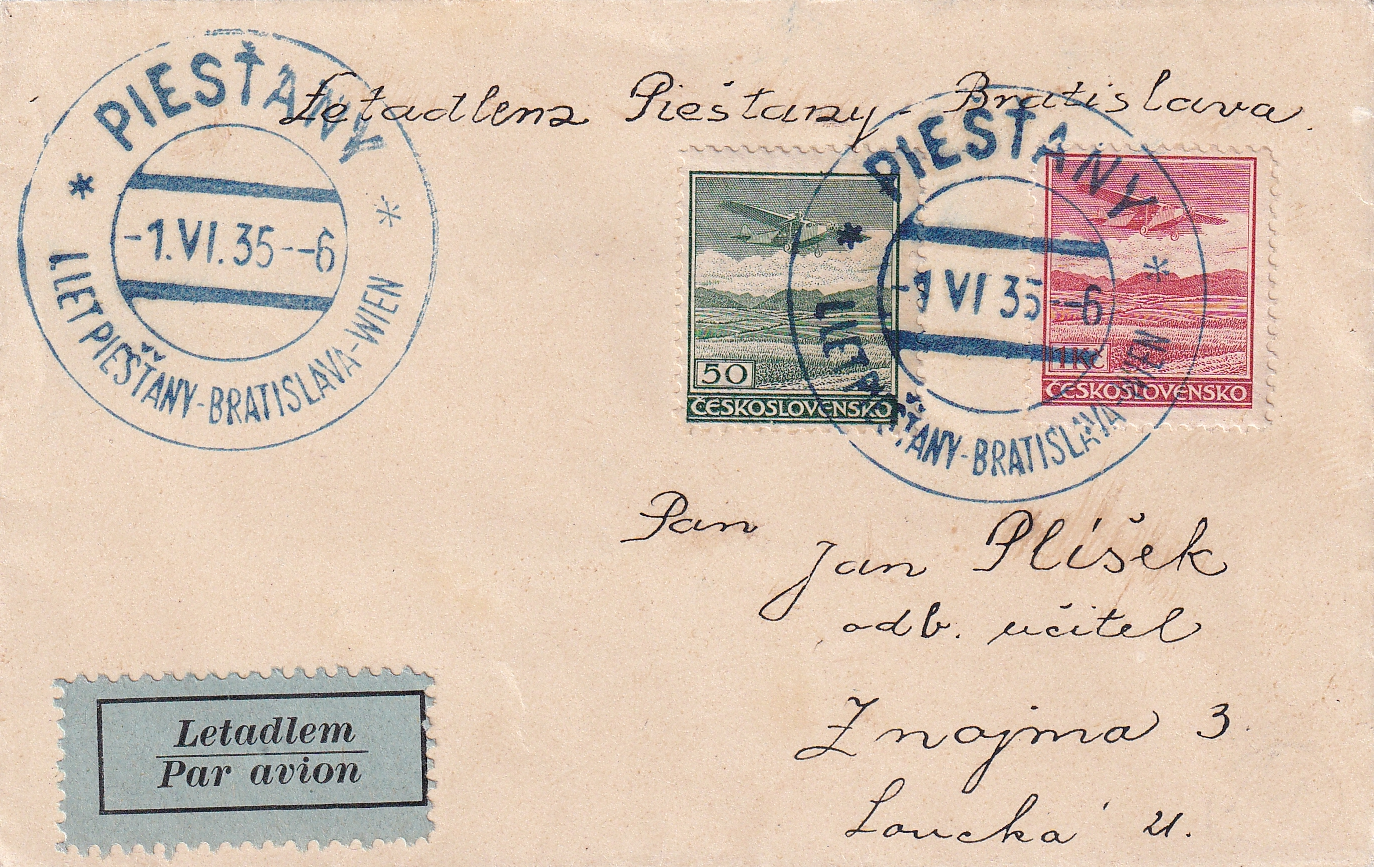 PIEŠŤANY
-1.VI.35--6
I. LET PIEŠŤANY-BRATISLAVA-WIEN
Letadlem Piešťany - Bratislava.
PIEŠŤANY
-1 VI 35--6
I. LET PIEŠŤANY-BRATISLAVA-WIEN
50
ČESKOSLOVENSKO
1 Kč
ČESKOSLOVENSKO
Pan
Jan Plíšek
odb. učitel
Znojmo 3.
Loucká ul.
Letadlem
Par avion